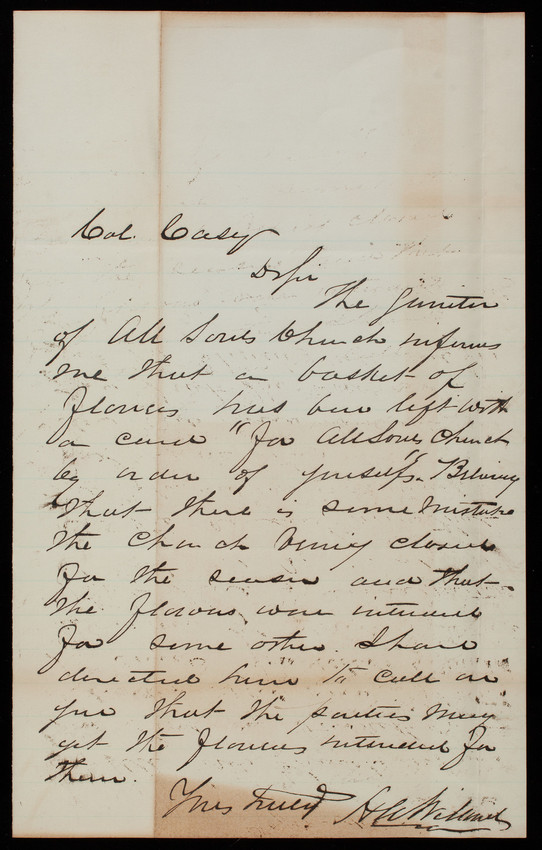 Col. Casey
D Sir
The Janitor
of All Souls Church informs
me that a basket of
flowers has been left with
a card "for All Souls Church
by order of yourself". Believing
that there is some mistake
the Church being closed
for the season and that
the flowers were intended
for some other. I have
directed him to call on
you that the parties may
get the flowers intended for
them.
Yours truly H A Willard